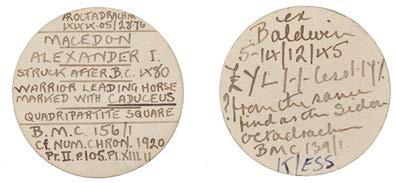 AR OCTADRACHM
IXIX·05/28·76
MACEDON
ALEXANDER I.
STRUCK AFTER B.C. IX80
WARRIOR LEADING HORSE
MARKED WITH CADUCEUS
QUADRIPARTITE SQUARE
B.M.C. 156/1
Cf. NUM. CHRON. 1920
Pt. II. P.105. Pl. XIII 11
ex
Baldwin
5-IX/12/IX5
£YL/-/-
? from the same
find as the Sidon
octadrachm
BMC 139/1.
K/ESS